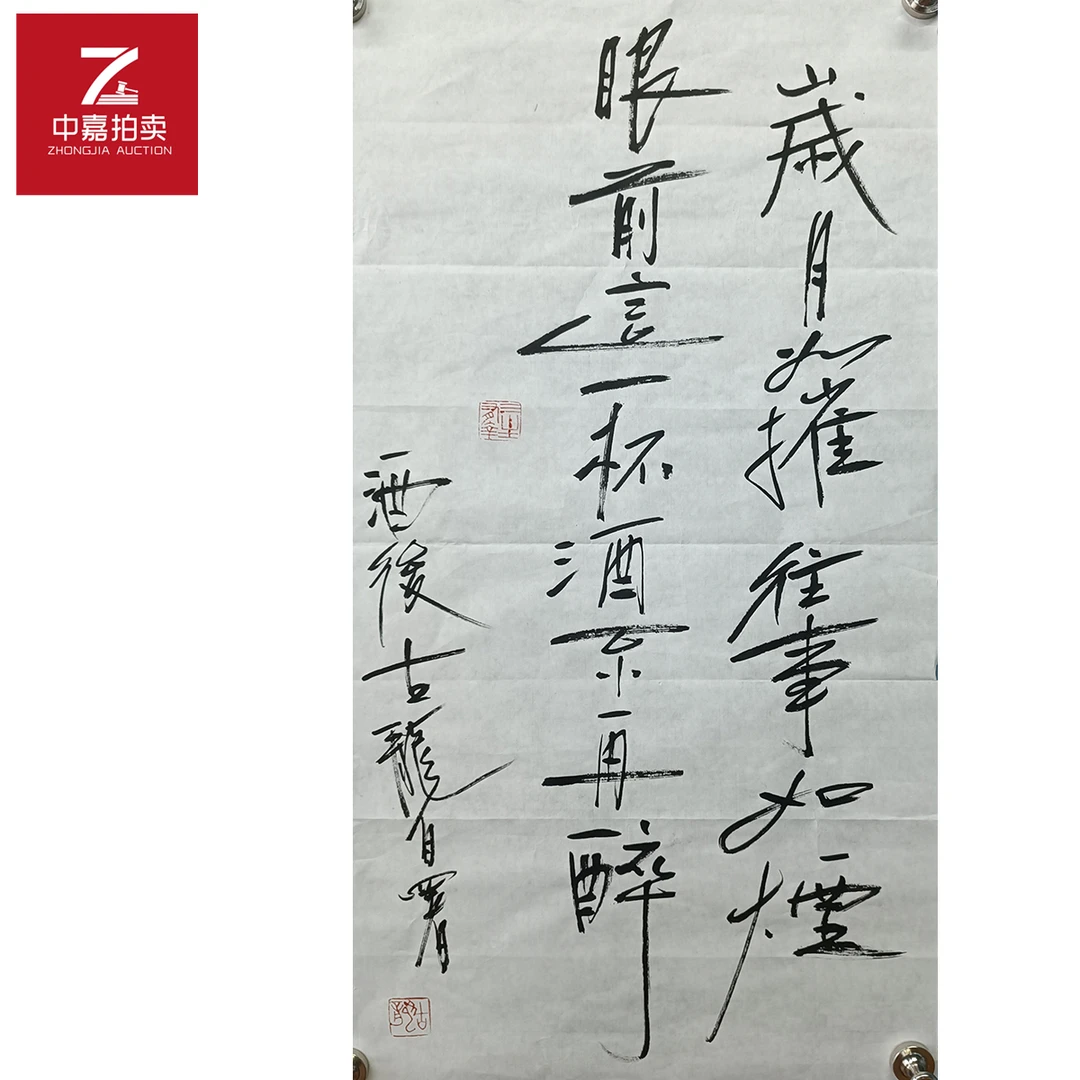 中嘉拍卖
ZHONGJIA AUCTION
歲月如摧往事如煙
眼前這一杯酒再醉
酒後古龍自署